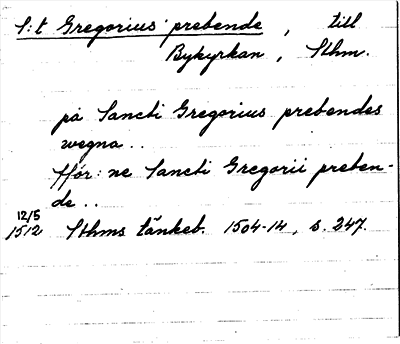 S:t Gregorius prebende, till
Bykyrkan, Sthm.
på Sancti Gregorius prebendes
wegna..
ffór: ne Sancti Gregorii preben-
de..
12/5
1512 Sthms tänkeb. 1504-14, s. 247.